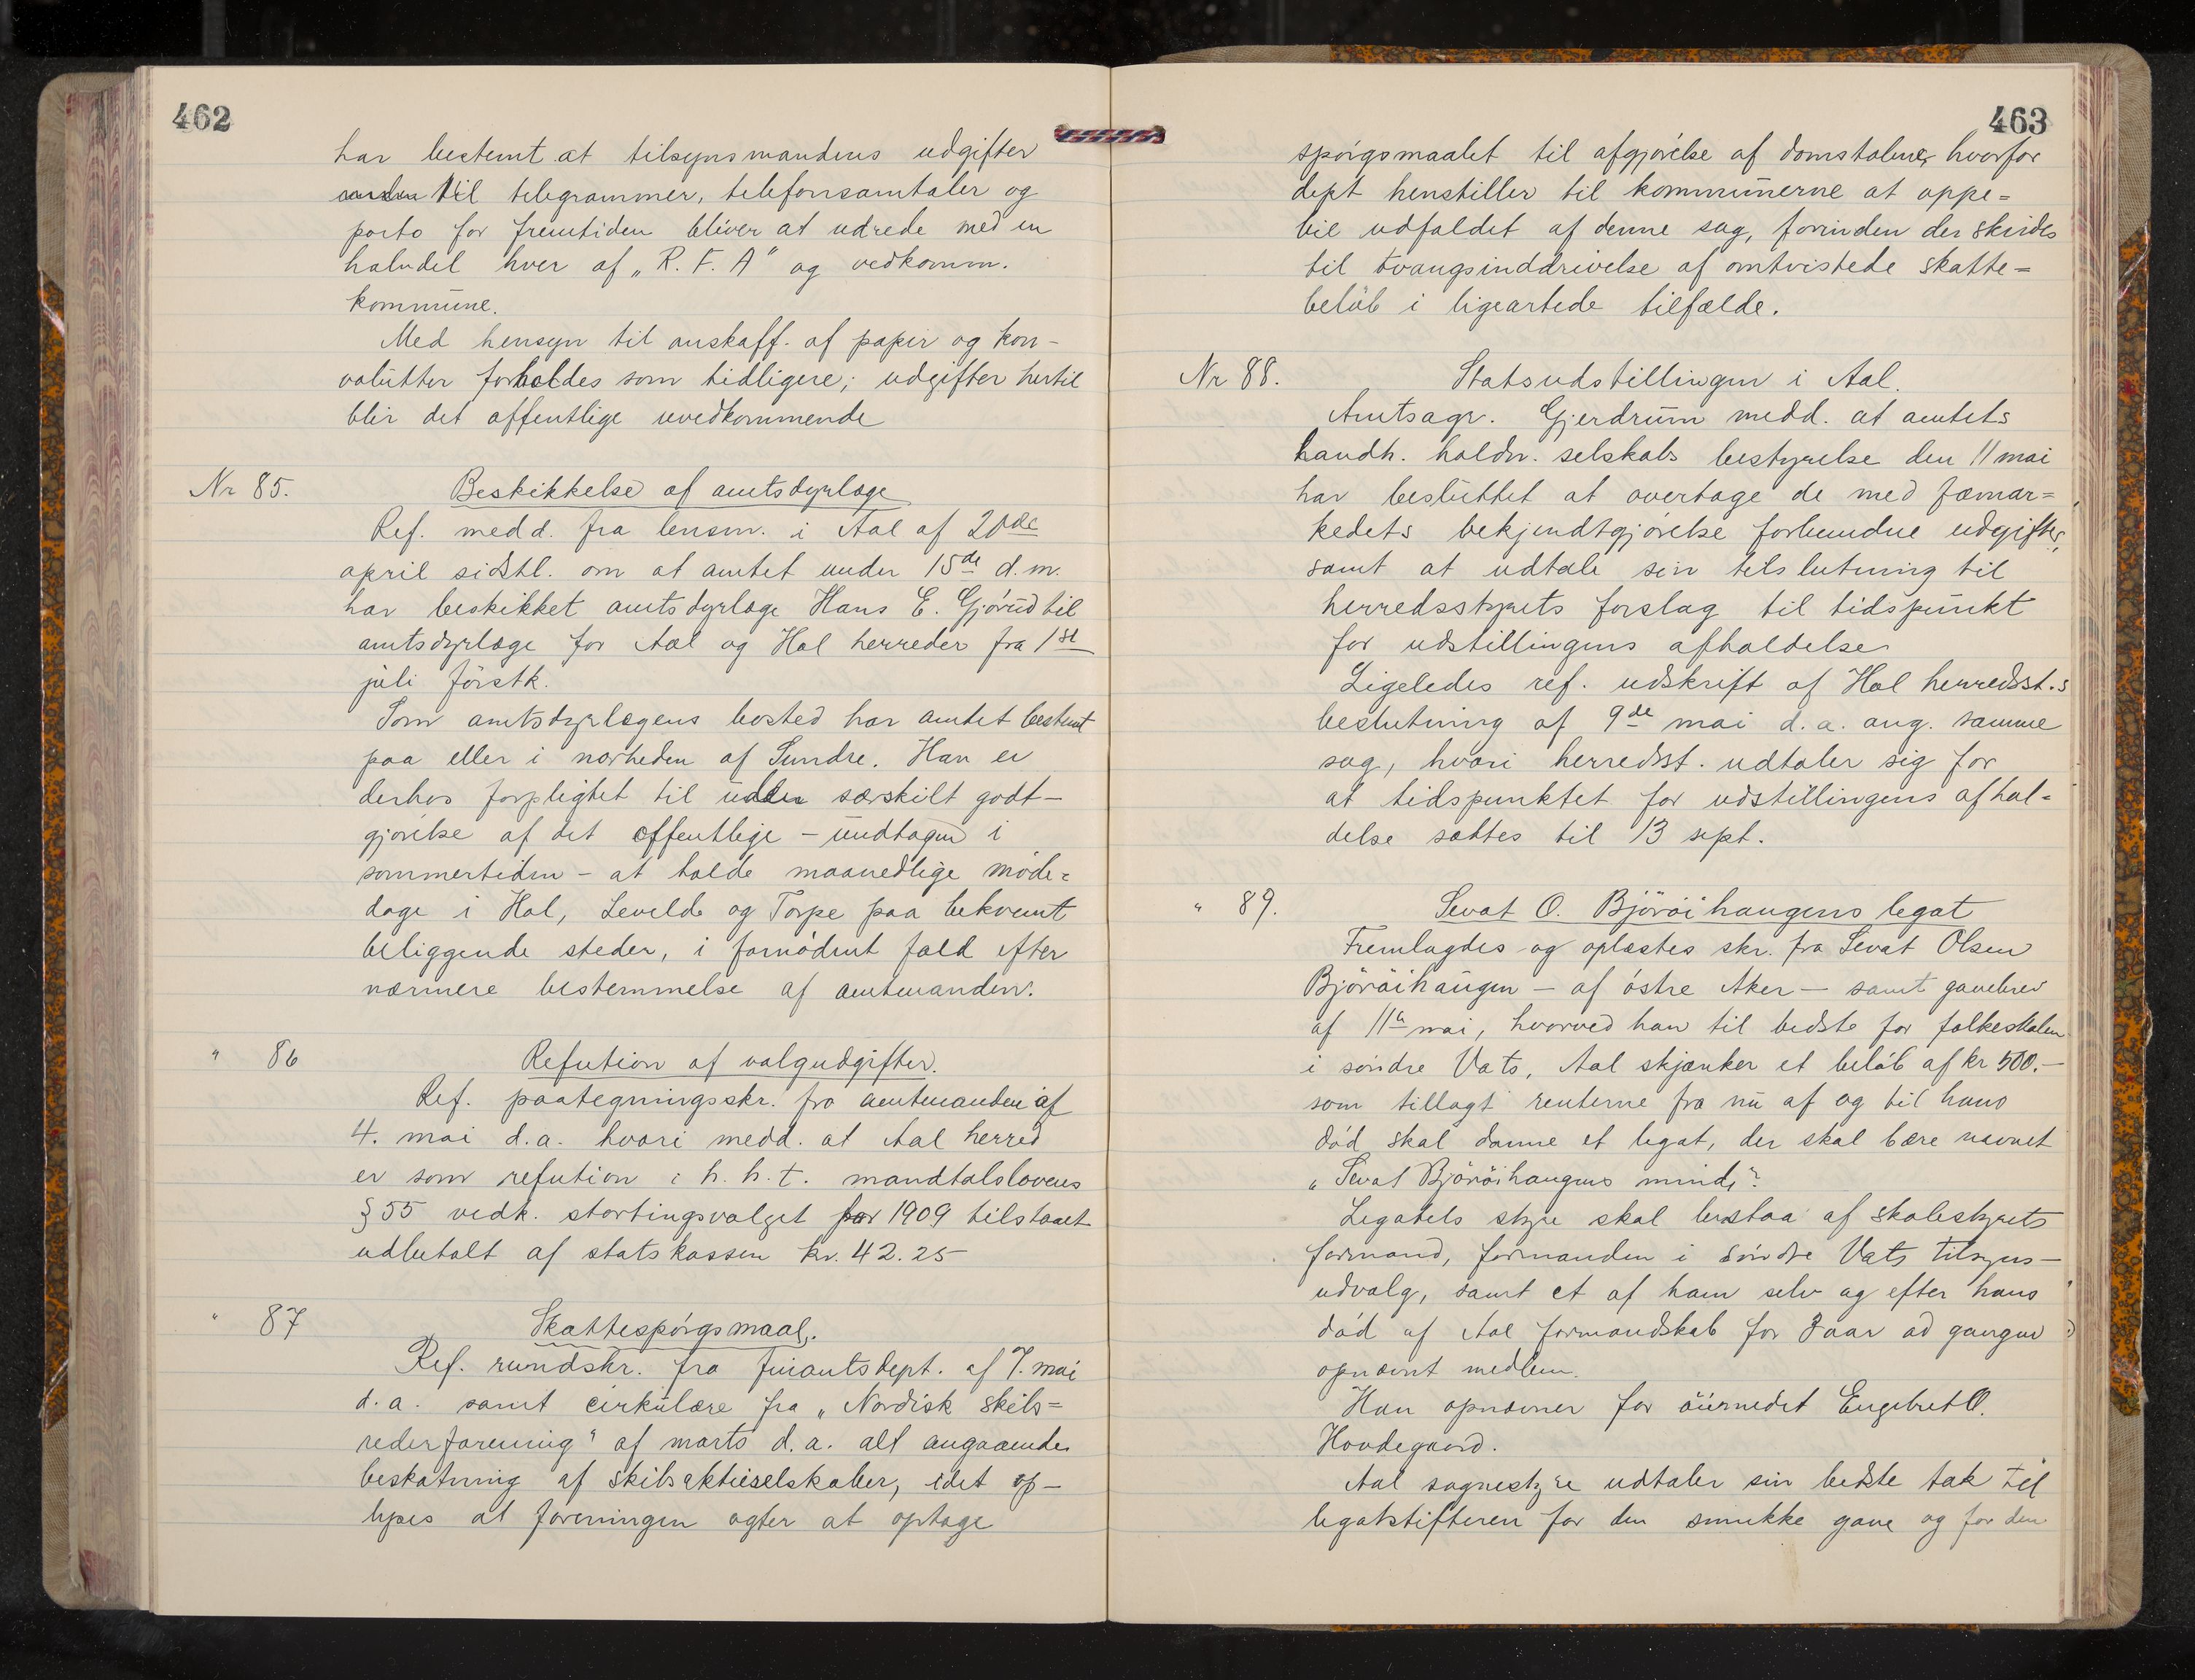 462
har bestemt at tilsynsmandens udgifter
til telegrammer, telefonsamtaler og
porto for fremtiden bliver at udrede med en
halvdel hver af „R. F. A" og vedkomm.
kommune.
Med hensyn til anskaff. af papir og kon-
volutter forholdes som tidligere; udgifter hertil
blir det offentlige uvedkommende
Nr 85. Beskikkelse af amtsdyrlæge
Ref. medd. fra lensm. i Aal af 20de
april sidstl. om at amtet under 15de d.m.
har beskikket amtsdyrlæge Hans E. Gjörud til
amtsdyrlæge for Aal og Hol herreder fra 1ste
juli förstk.
Som amtsdyrlægens bosted har amtet bestemt
paa eller i nærheden af Sundre. Han er
derhos forpligtet til uden særskilt godt-
gjörelse af det offentlige – undtagen i
sommertiden – at holde maanedlige möde=
dage i Hol, Leveld og Torpe paa bekvemt
beliggende steder, i fornödent fald efter
nærmere bestemmelse af amtmanden.
" 86 Refution af valgudgifter.
Ref. paategningsskr. fra amtmanden af
4. mai d.a. hvori medd. at Aal herred
er som refution i h. h. t. mandtalslovens
§ 55 vedk. stortingsvalget for 1909 tilstaaet
udbetalt af statskassen kr. 42.25
" 87 Skattespörgsmaal.
Ref. rundskr. fra finantsdept. af 7. mai
d.a. samt cirkulære fra „Nordisk skibs=
rederforening" af marts d.a. alt angaaende
beskatning af skibsaktieselskaber, idet op-
lyses at foreningen agter at optage
463
spörgsmaalet til afgjörelse af domstolene, hvorfor
dept henstiller til kommunerne at oppe=
bie udfaldet af denne sag, forinden der skrides
til tvangsinddrivelse af omtvistede skatte=
belöb i ligeartede tilfælde.
Nr 88. Statsudstillingen i Aal.
Amtsagr. Gjerdrum medd. at amtets
landh. holdn. selskabs bestyrelse den 11 mai
har besluttet at overtage de med fæmar=
kedets bekjendtgjörelse forbundne udgifter,
samt at udtale sin tilslutning til
herredsstyrets forslag til tidspunkt
for udstillingens afholdelse
Ligeledes ref. udskrift af Hol herredsst.s
beslutning af 9de mai d.a. ang. samme
sag, hvori herredsst. udtaler sig for
at tidspunktet for udstillingens afhol=
delse sættes til 13 sept.
" 89. Sevat O. Björöihaugens legat
Fremlagdes og oplæstes skr. fra Sevat Olsen
Björöihaugen – af östre Aker – samt gavebrev
af 11te mai, hvorved han til bedste for folkeskolen
i söndre Vats, Aal skjænker et belöb af kr 500.–
som tillagt renterne fra nu af og til hans
död skal danne et legat, der skal bære navnet
„Sevat Björöihaugens minde".
Legatets styre skal bestaa af skolestyrets
formand, formanden i söndre Vats tilsyns-
udvalg, samt et af ham selv og efter hans
död af Aal formandskab for 3 aar ad gangen
opnævnt medlem.
Han opnævner for öiemedet Engebret O.
Hovdegaard.
Aal sognestyre udtaler sin bedste tak til
legatstifteren for den smukke gave og for den